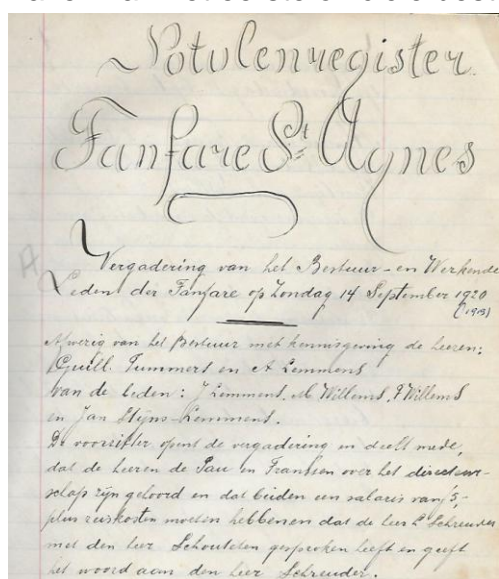 Notulenregister
Fanfare St Agnes
Vergadering van het Bestuur- en Werkende
Leden der Fanfare op Zondag 14 September 1920
(1913)
Afwezig van het Bestuur met kennisgeving de heeren:
Guill. Tummers en A Lemmens
van de leden: J Lemmens, M Willems, F Willems
en Jan Stijns-Lemmens.
De voorzitter opent de vergadering en deelt mede,
dat de heeren de Pau en Franssen over het directeur-
schap zijn gehoord en dat beiden een salaris van 5,-
plus reiskosten moeten hebben en dat de heer L Schreuder
met den heer Schoutelen gesproken heeft en geeft
het woord aan den heer Schreuder.